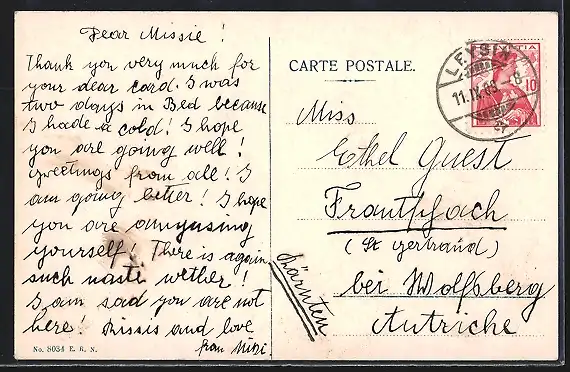 Dear Missie!
Thank you very much for
your dear card. I was
two days in Bed because
I hade a cold! I hope
you are going well!
greetings from all! I
am going better! I hope
you are amyusing
yourself! There is again
such naste wether!
I am sad you are not
here! Kissis and love
from Mitzi.
No. 8034 E. R. N.
CARTE POSTALE.
HELVETIA
10
LEYSIN
11.IX.09.-8
Miss
Ethel Guest
Frantschach
(St Gertraud)
bei Wolfsberg
Kärnten
Autriche